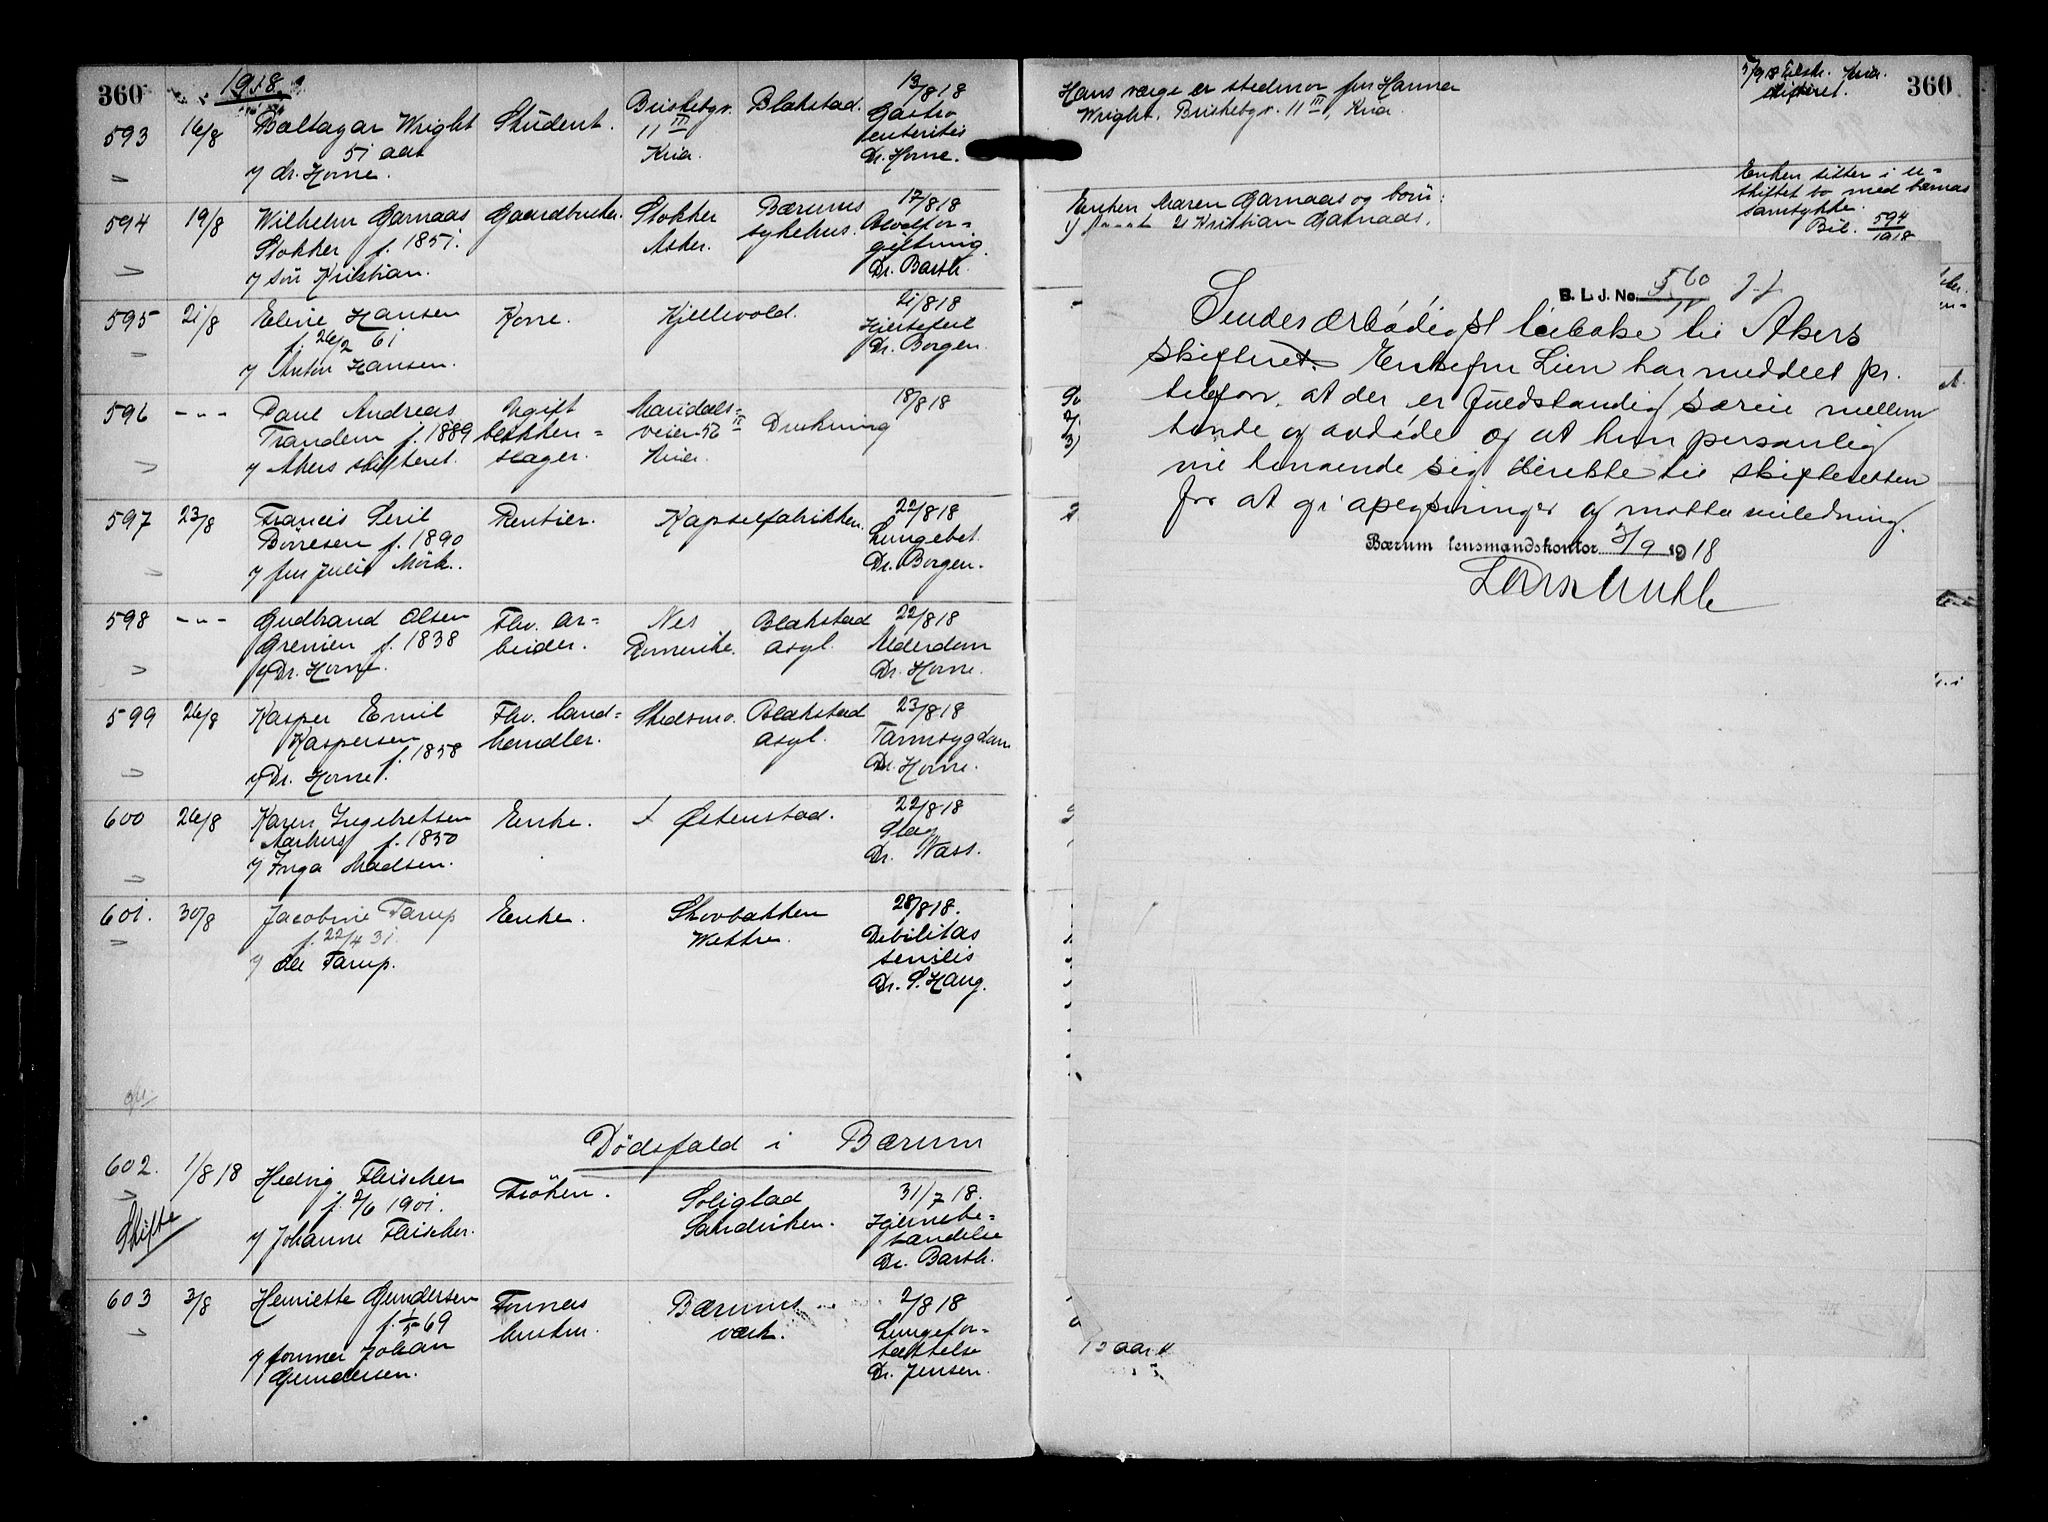 360
1918
593
16/8
Baltazar Wright
51 aar
v/ dr. Horne.
Student.
Briskebygv.
11 III
Kria.
Blakstad.
13/8 18
Gastro
enteritis
Dr. Horne.
594
19/8
Wilhelm Garnaas
Stokker f. 1851.
v/ søn Kristian.
Gaardbruker.
Stokker
Asker.
Bærums
sykehus.
17/8 18
Blodfor-
giftning
Dr. Barth.
595
21/8
Eline Hansen
f. 26/2 61
v/ Anton Hansen.
Kone.
Kjellevold.
21/8 18
Hjertefeil
Dr. Borgen.
596
- " -
Paul Andreas
Trandem f. 1889
v/ Akers skifteret.
Ugift
blikken-
slager.
Maridals-
veien 56 II
Kria.
Drukning
18/8 18
597
23/8
Francis Seril
Børresen f. 1890
v/ fru Julie Mörk.
Rentier.
Kapselfabrikken.
22/8 18
Lungebet.
Dr. Borgen.
598
- " -
Gudbrand Olsen
Grenien f. 1838
v/ Dr. Horne.
Fhv. ar-
beider.
Nes
Romerike.
Blakstad
asyl.
22/8 18
Alderdom
Dr. Horne.
599
26/8
Kasper Emil
Kaspersen
f. 1858
v/ Dr. Horne.
Fhv. land-
handler.
Skedsmo.
Blakstad
asyl.
23/8 18
Tarmsygdom
Dr. Horne.
600
26/8
Karen Ingebretsen
Aarbug f. 1850
v/ Inga Madsen.
Enke.
Østenstad.
22/8 18
Slag
Dr. Wass.
601.
30/8
Jacobine Tarup
f. 22/4 31.
v/ Ole Tarup.
Enke.
Skovbakken
Wettre.
28/8 18.
Debilitas
senilis
Dr. S. Haug.
Dødsfald i Bærum
602.
Skifte
1/8 18
Hedvig Fleischer
f. 2/6 1901.
v/ Johanne Fleischer.
Frøken.
Soliglad
Sandviken.
31/7 18.
Hjernebe-
tændelse
Dr. Barth.
603
3/8
Henriette Gundersen
f. 1/5 69
v/ former Johan
Gundersen.
Formers
hustru.
Bærums
værk.
2/8 18
Lungefor-
tættelse
Dr. Jensen.
360
Hans værge er stedmor fru Hanna
Wright, Briskebygv. 11 III, Kria.
5/9 18 Tilstr. Kria.
skifteret.
Enken Maren Garnaas og børn:
2) Kristian Garnaas.
Enken sitter i u-
skiftet bo med barnas
samtykke.
Bil. 594/1918
B. L. J. No. 560
Sendes ærbødigst tilbake til Akers
skifteret. Enkefru Lien har meddelt pr.
telefon, at der er fuldstændig særeie mellem
hende og avdøde og at hun personlig
vil henvende sig direkte til skifteretten
for at gi opplysninger og motta veiledning.
Bærum lensmandskontor 3/9 1918
15 aar